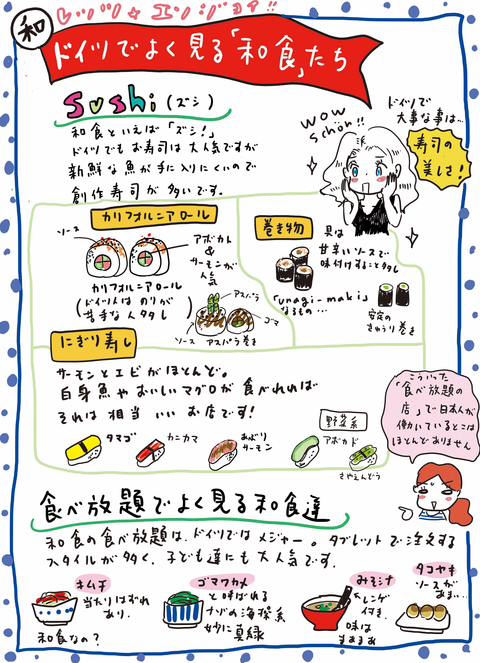 レッツ☆エンジョイ!!
和
ドイツでよく見る「和食」たち
sushi (ズシ)
和食といえば「ズシ!」
ドイツでもお寿司は大人気ですが
新鮮な魚が手に入りにくいので
創作寿司が多いです。
wow
schön!!
ドイツで
大事な事は…
寿司の
美しさ!
カリフォルニアロール
ソース
アボカド
&
サーモンが
人気
カリフォルニアロール
(ドイツ人はのりが
苦手な人多し)
アスパラ
ゴマ
ソース
アスパラ巻き
巻き物
具は
甘辛いソースで
味付けすること多し
「unagi-maki」
なるもの…
安定の
きゅうり巻き
にぎり寿し
サーモンとエビがほとんど。
白身魚やおいしいマグロが食べれれば
それは相当いいお店です!
タマゴ
カニカマ
あぶり
サーモン
野菜系
アボカド
さやえんどう
こういった
「食べ放題の
店」で日本人が
働いていることは
ほとんどありません
食べ放題でよく見る和食達
和食の食べ放題は、ドイツではメジャー。タブレットで注文する
スタイルが多く、子ども達にも大人気です。
キムチ
当たりはずれ
あり。
和食なの?
ゴマワカメ
と呼ばれる
ナゾの海藻系
妙に真緑
みそシチ
レンゲ
付き。
味は
まあまあ
タコヤキ
ソースが
あまい…